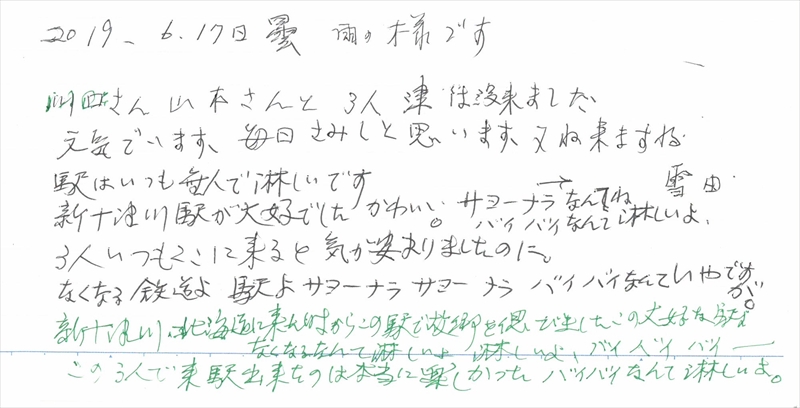 2019、6.17日 曇 雨の様です
川田さん 山本さんと 3人 津 来ました、
元気でいます、毎日さみしと思います、又ね来ますね
駅はいつも無人で淋しいです 雪由
新十津川駅が大好でした かわいい。サヨーナラなんてね
バイバイなんて淋しいよ、
3人いつもここに来ると気が安まりましたのに。
なくなる鉄道よ 駅よ サヨーナラ サヨーナラ バイバイなんていやですが。
新十津川、北海道に来た時からこの駅で故郷を思い出したこの大好な駅
なくなるなんて淋しいよ 淋しいよ、バイバイバイー
この3人で来駅出来たのは本当に楽しかった バイバイなんて淋しいよ。